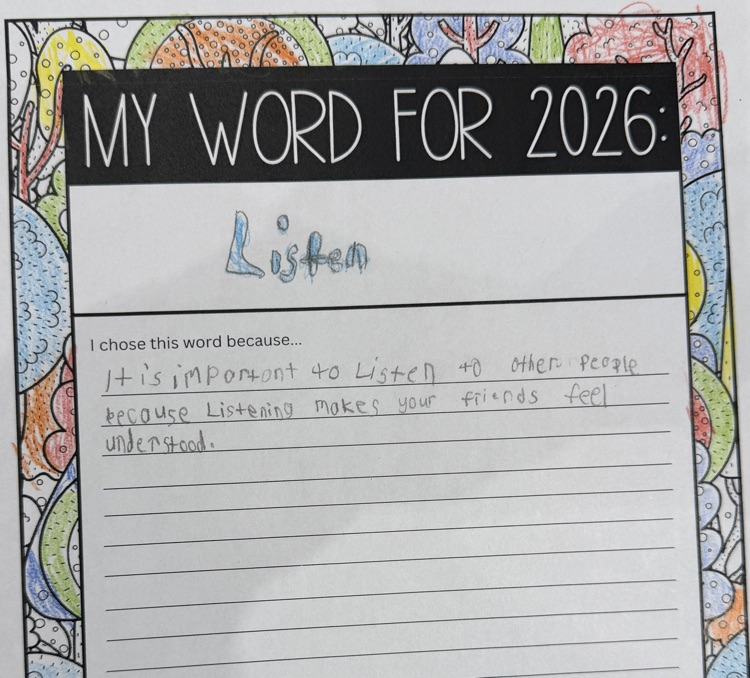 MY WORD FOR 2026:
Listen
I chose this word because...
It is important to Listen to other People
because Listening makes your friends feel
understood.